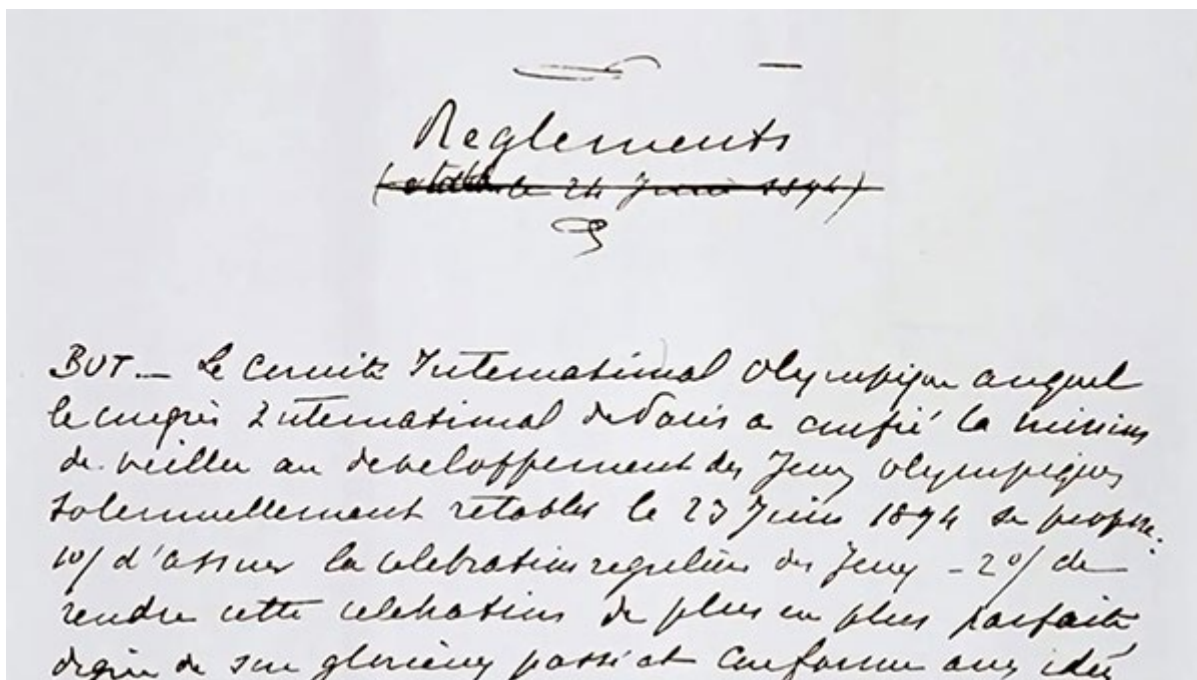 Reglements
(etabli le 24 Juin 1894)
BUT — Le Comité International Olympique auquel
le congrès International de Paris a confié la mission
de veiller au developpement des Jeux olympiques
solennellement retablis le 23 Juin 1894 se propose:
1o/ d'assurer la celebration reguliere des Jeux - 2o/ de
rendre cette celebration de plus en plus parfaite
digne de son glorieux passé et conforme aux idées